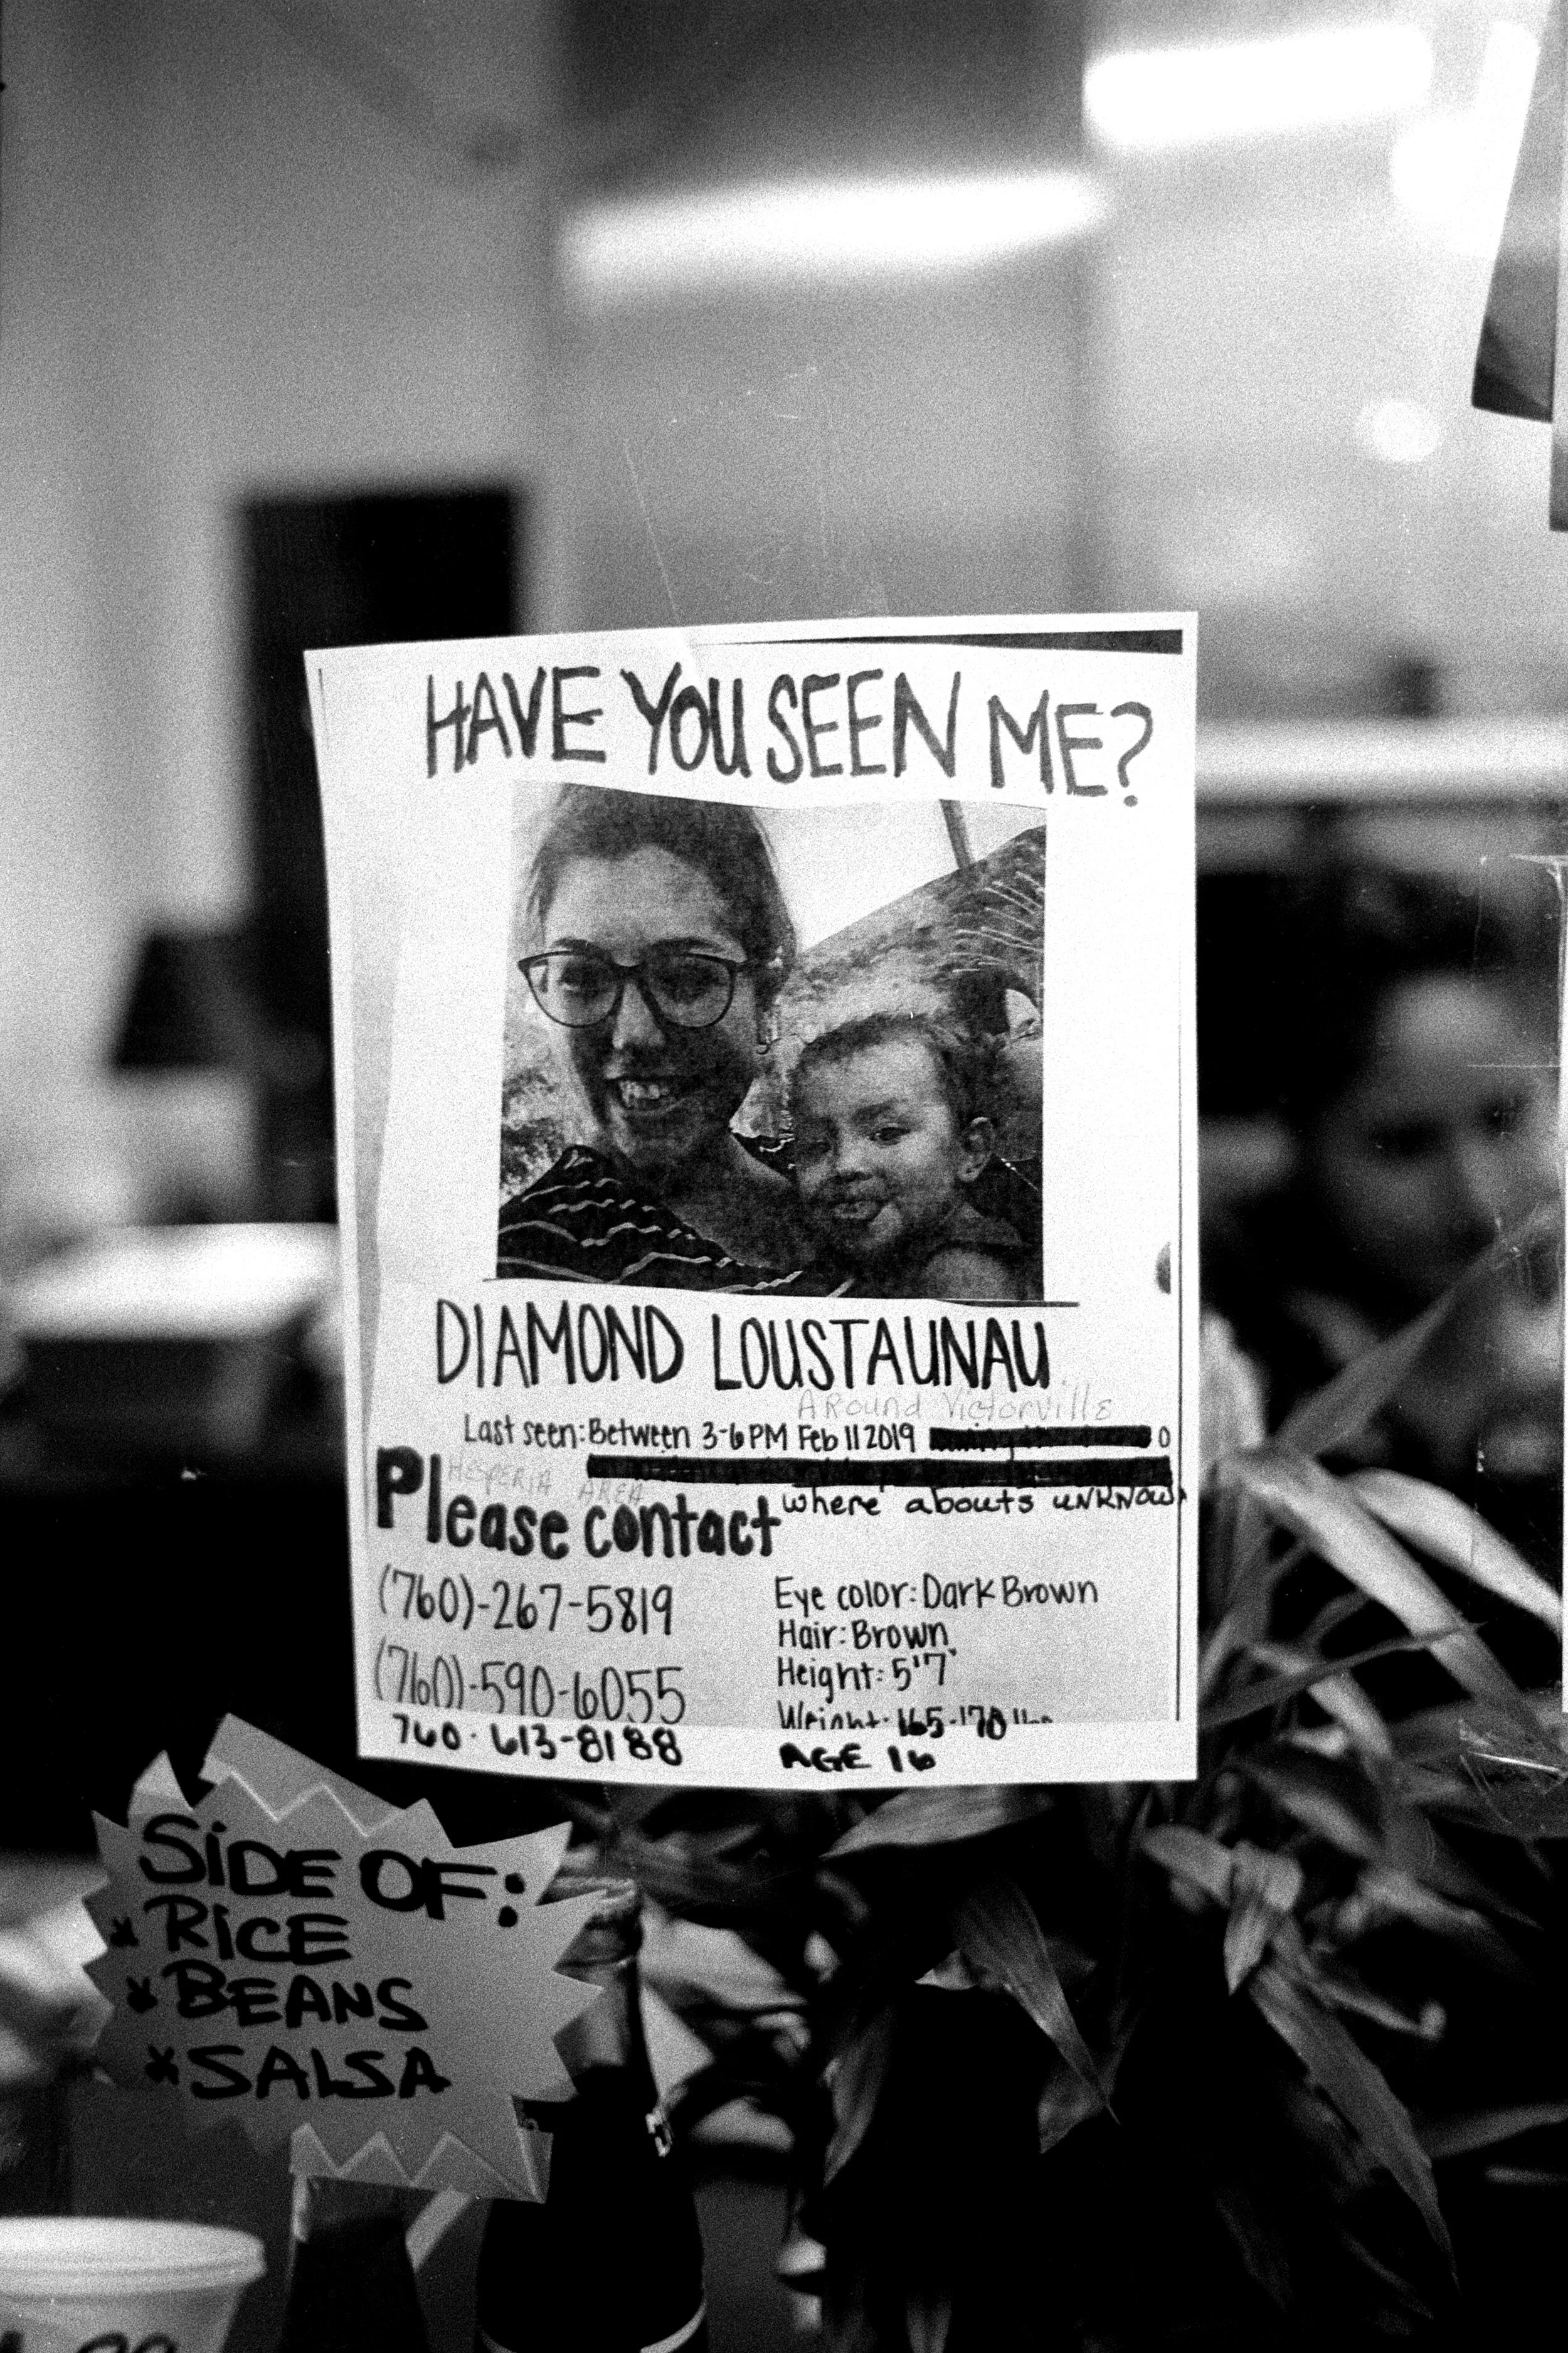 HAVE YOU SEEN ME?
DIAMOND LOUSTAUNAU
AROUND VICTORVILLE
Last seen: Between 3-6 PM Feb 11 2019
HESPERIA AREA
where abouts UNKNOWN
Please contact
(760)-267-5819
(760)-590-6055
760-613-8188
Eye color: Dark Brown
Hair: Brown
Height: 5'7"
Weight: 165-170 lbs
AGE 16
SiDE OF:
* RiCE
* BEANS
* SALSA